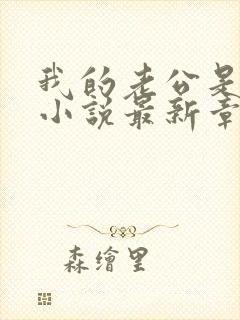 我的老公是
小说最新章
森繪里